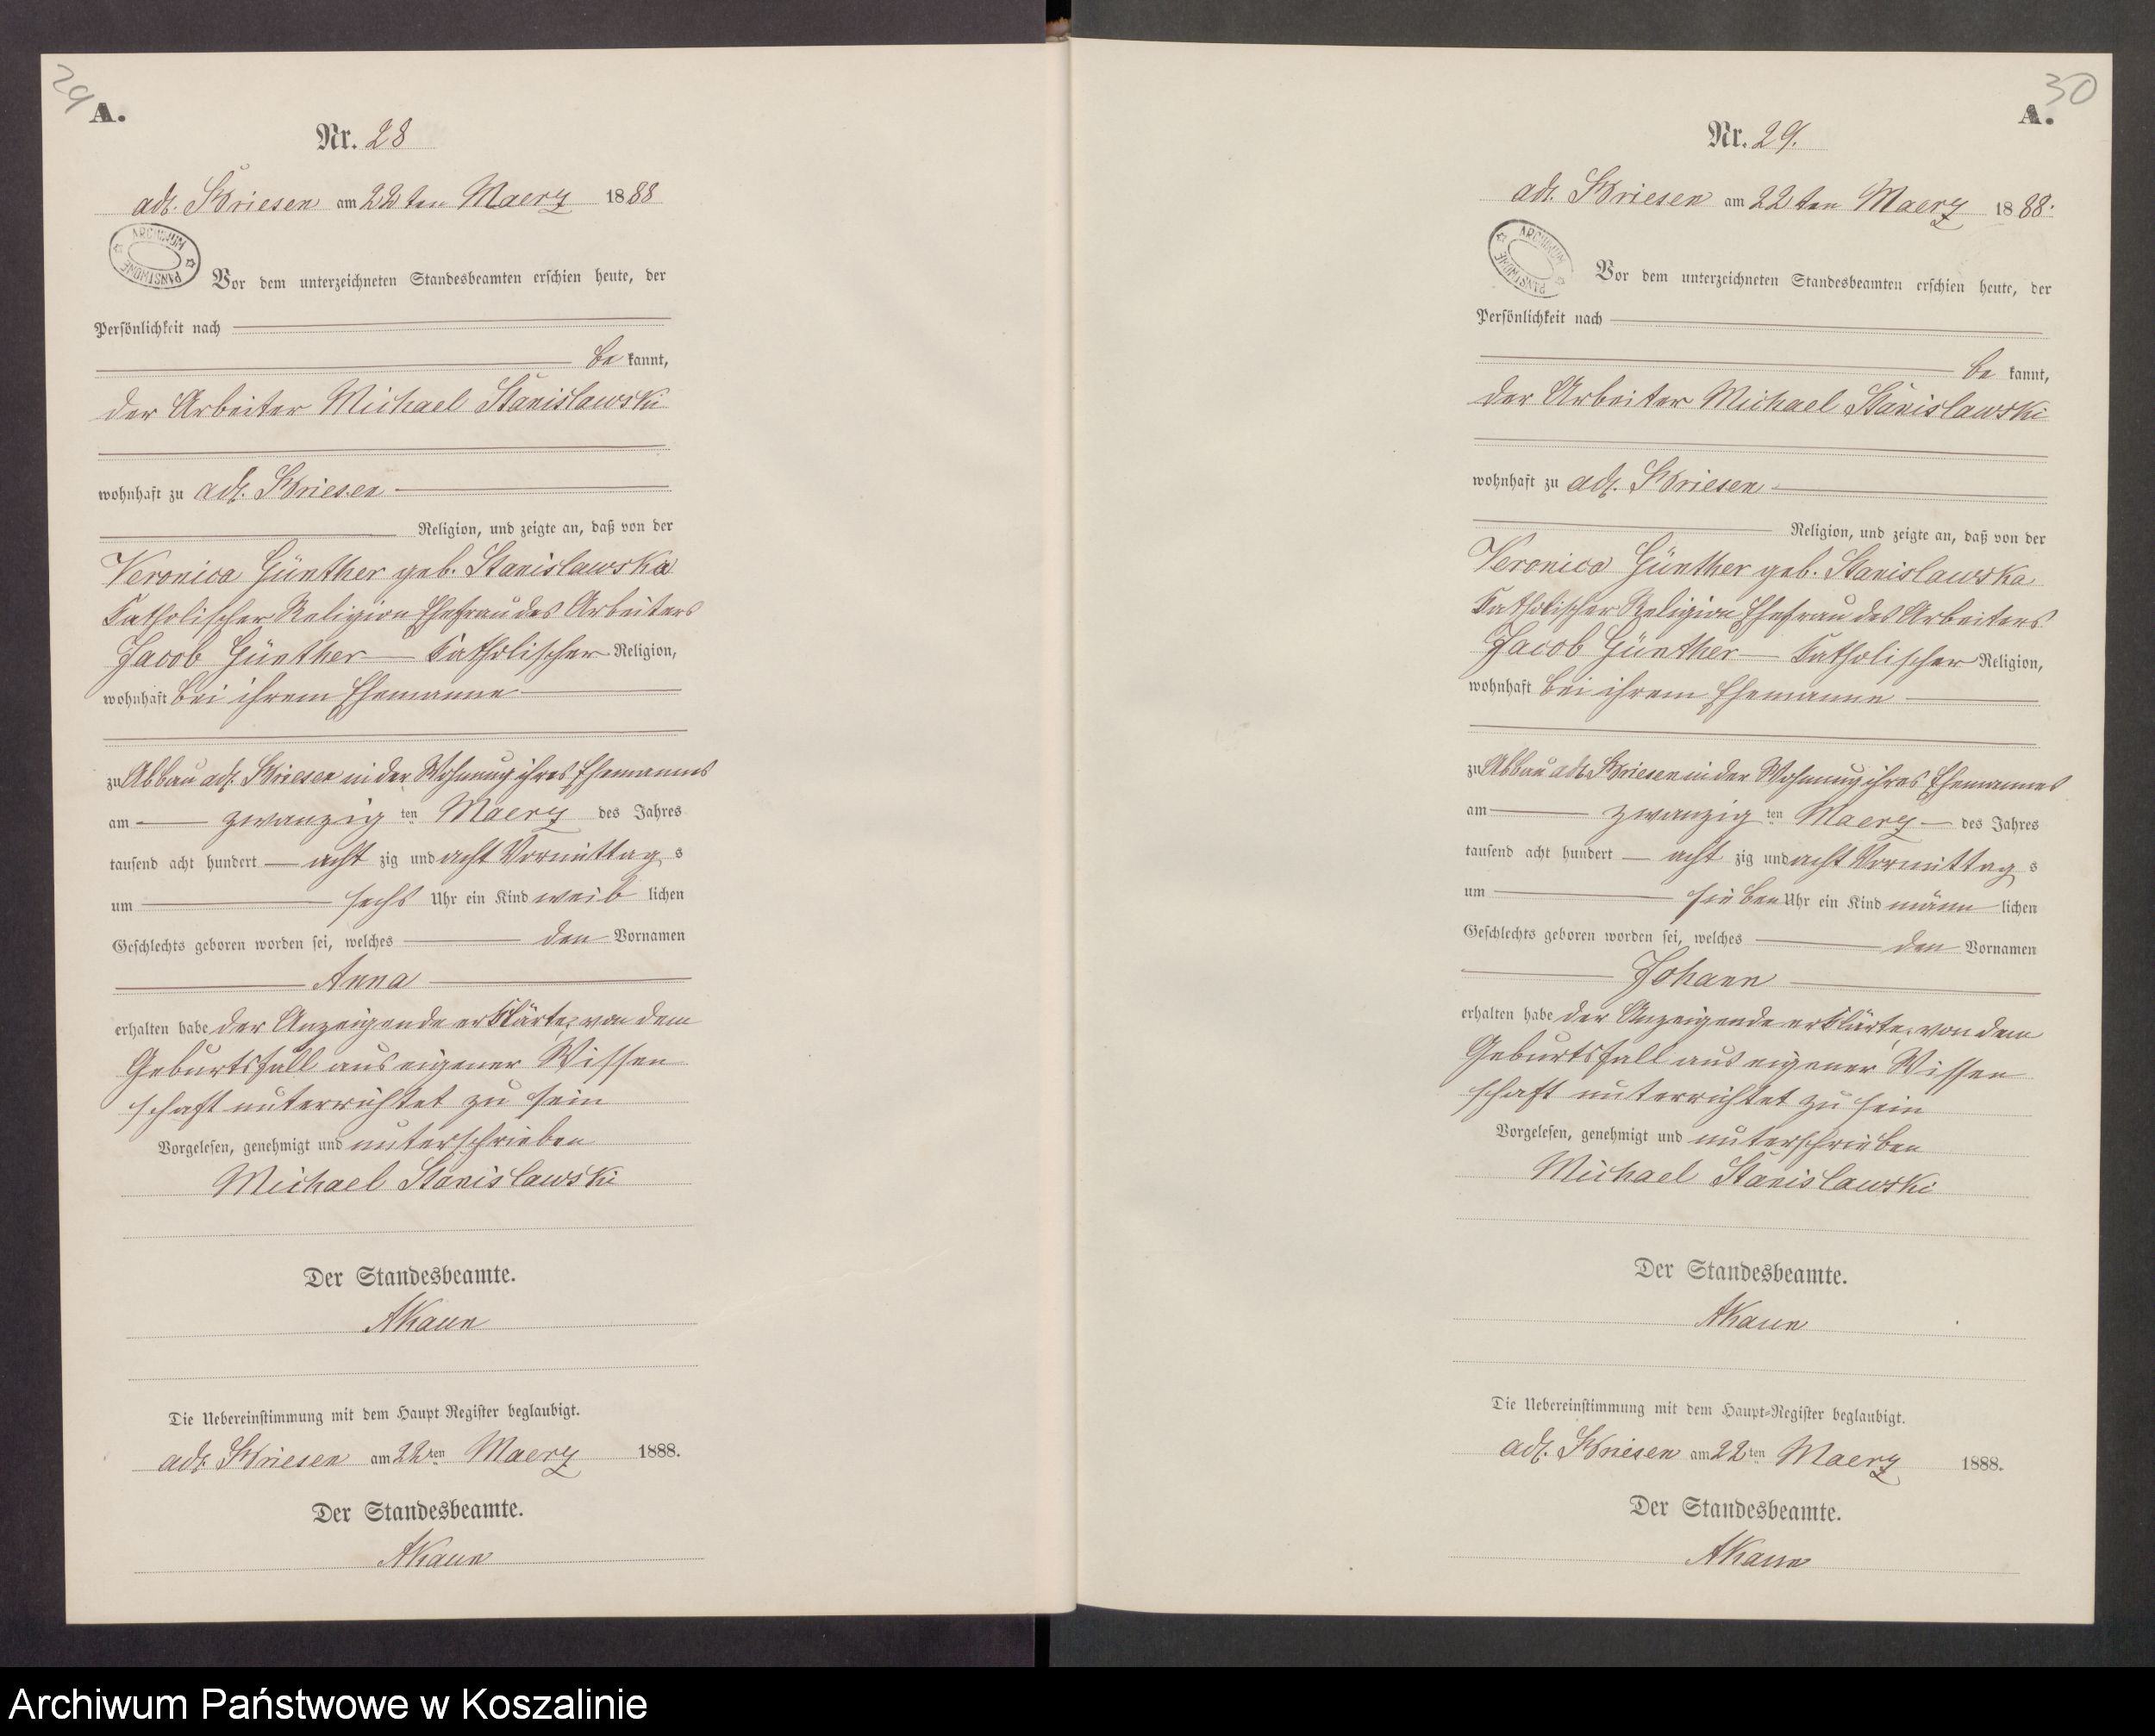 29
A.
Nr. 28
adl. Briesen am 22 ten Maerz 1888
ARCHIWUM PAŃSTWOWE
Vor dem unterzeichneten Standesbeamten erschien heute, der
Persönlichkeit nach
be kannt,
der Arbeiter Michael Stanislawski
wohnhaft zu adl. Briesen
Religion, und zeigte an, daß von der
Veronica Günther geb. Stanislawska
katholischer Religion Ehefrau des Arbeiters
Jacob Günther katholischer Religion,
wohnhaft bei ihrem Ehemanne
zu Abbau adl. Briesen in der Wohnung ihres Ehemannes
am zwanzig ten Maerz des Jahres
tausend acht hundert acht zig und acht Vormittag s
um sechs Uhr ein Kind weib lichen
Geschlechts geboren worden sei, welches den Vornamen
Anna
erhalten habe der Anzeigende erklärte, von dem
Geburtsfall aus eigener Wissen
schaft unterrichtet zu sein
Vorgelesen, genehmigt und unterschrieben
Michael Stanislawski
Der Standesbeamte.
Die Uebereinstimmung mit dem Haupt-Register beglaubigt.
adl. Briesen am 22 ten Maerz 1888.
Der Standesbeamte.
30
A.
Nr. 29.
adl. Briesen am 22 ten Maerz 1888.
ARCHIWUM PAŃSTWOWE
Vor dem unterzeichneten Standesbeamten erschien heute, der
Persönlichkeit nach
be kannt,
der Arbeiter Michael Stanislawski
wohnhaft zu adl. Briesen
Religion, und zeigte an, daß von der
Veronica Günther geb. Stanislawska
katholischer Religion Ehefrau des Arbeiters
Jacob Günther katholischer Religion,
wohnhaft bei ihrem Ehemanne
zu Abbau adl. Briesen in der Wohnung ihres Ehemannes
am zwanzig ten Maerz des Jahres
tausend acht hundert acht zig und acht Vormittag s
um sieben Uhr ein Kind männ lichen
Geschlechts geboren worden sei, welches den Vornamen
Johann
erhalten habe der Anzeigende erklärte, von dem
Geburtsfall aus eigener Wissen
schaft unterrichtet zu sein
Vorgelesen, genehmigt und unterschrieben
Michael Stanislawski
Der Standesbeamte.
Die Uebereinstimmung mit dem Haupt-Register beglaubigt.
adl. Briesen am 22 ten Maerz 1888.
Der Standesbeamte.
Archiwum Państwowe w Koszalinie